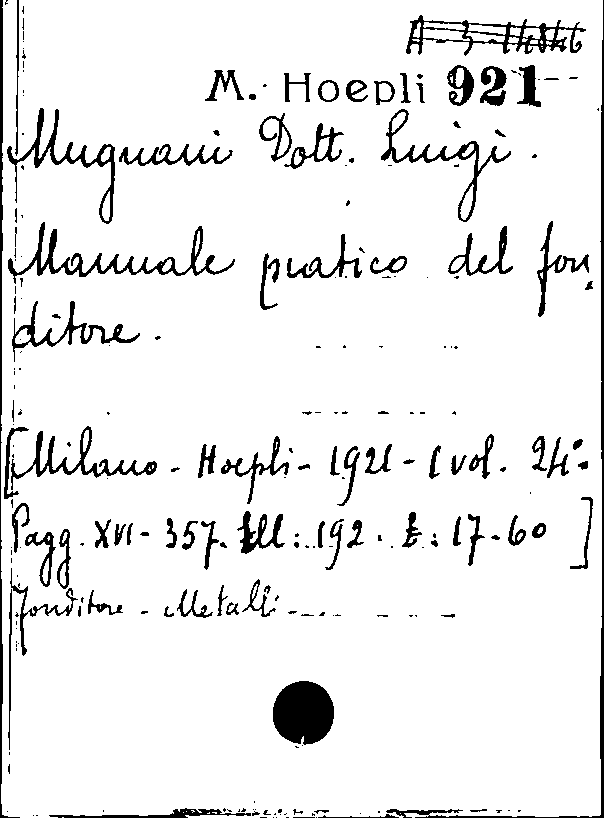 A-3-14846
M. Hoepli 921
Mugnani Dott. Luigi.
Manuale pratico del fon
ditore.
[Milano - Hoepli - 1921 - 1 vol. 24°
Pagg. XVI - 357. Ill: 192. £: 17.60]
Fonditore - Metalli